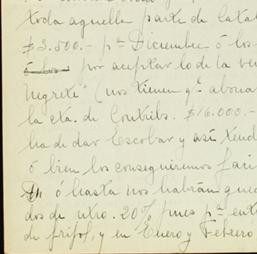 toda aquella parte de la ta
$3.500.- pª Diciembre ó los
por aceptar lo de la ve
negrete" (nos tienen qᵉ abona
la cta. de Contrib. $16.000.-
ha de dar Escobar y así tend
ó bien los conseguiremos faci
ó hasta nos habrán que
dos de ntro. 20% pues pª ent
de frifol, y en Enero y Febrero